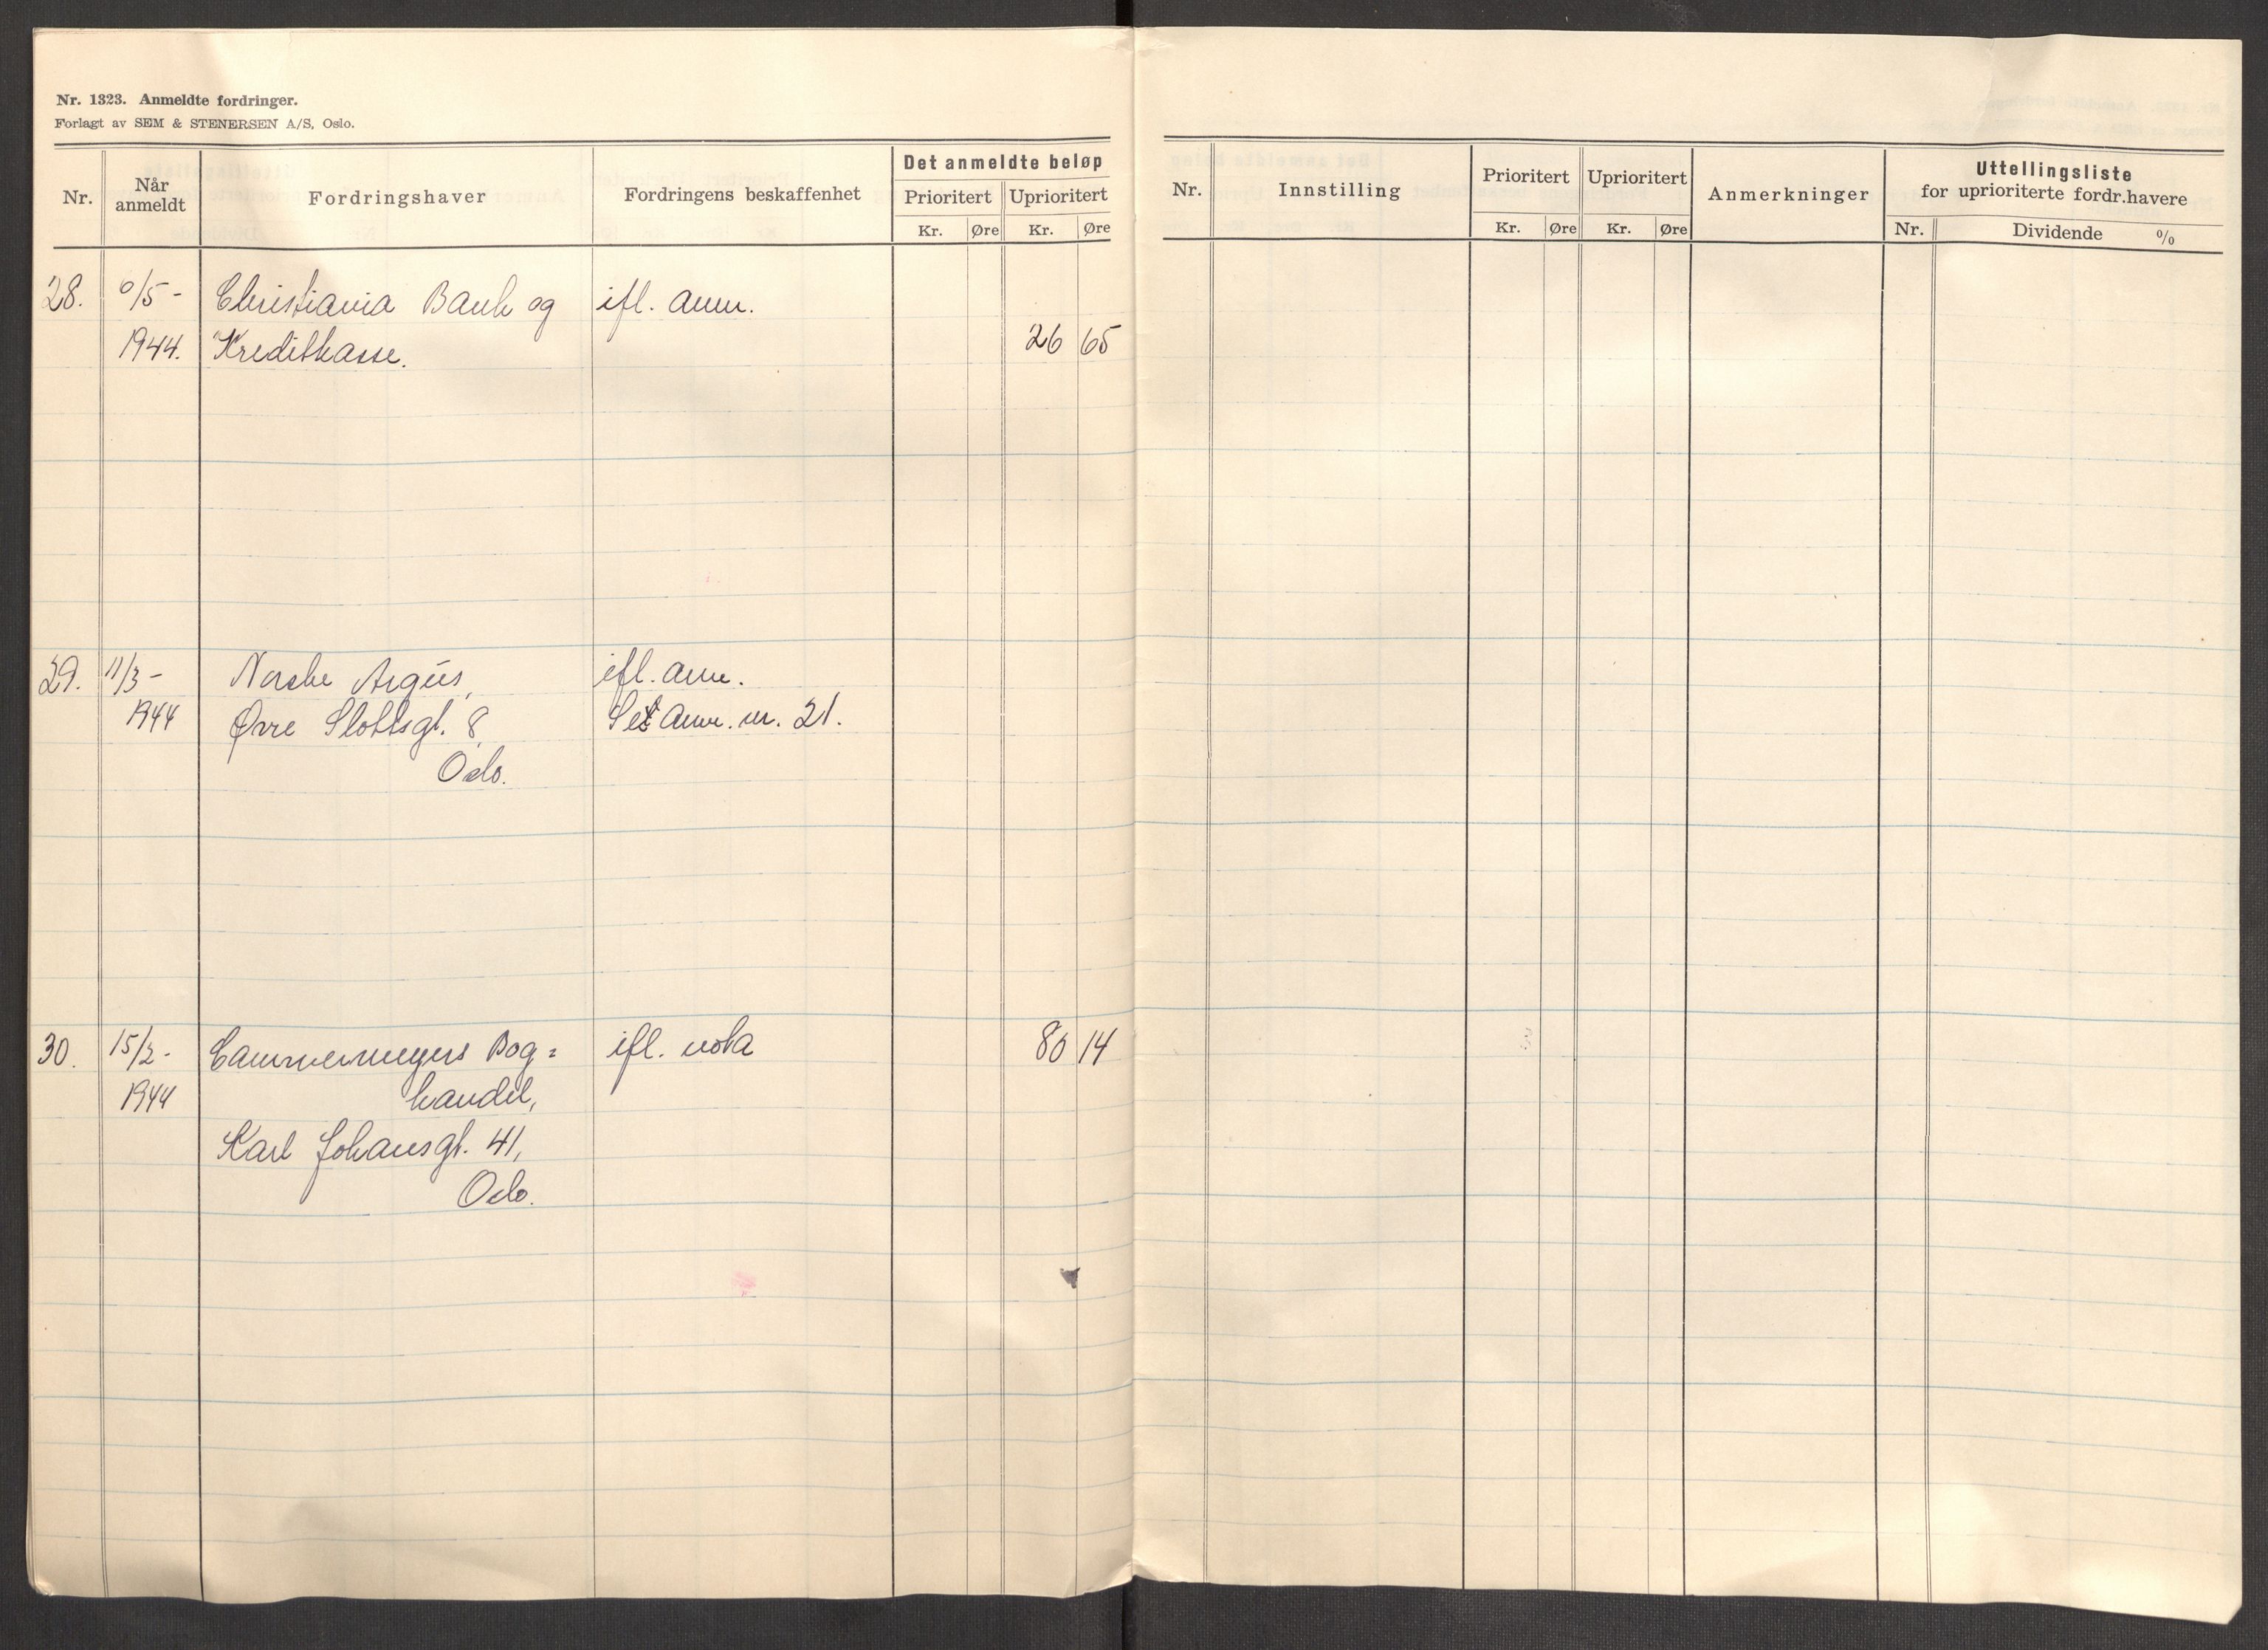 Nr. 1323. Anmeldte fordringer.
Forlagt av SEM & STENERSEN A/S, Oslo.
Nr.
Når anmeldt
Fordringshaver
Fordringens beskaffenhet
Det anmeldte beløp
Prioritert Uprioritert
Kr. Øre Kr. Øre
28. 6/5 - Christiania Bank og ifl. anm.
1944. Kreditkasse. 26 65
29. 11/3 - Norske Argus, ifl. anm.
1944 Øvre Slottsgt. 8 Se anm. nr. 21.
Oslo.
30. 15/2 - Cammermeyers Bog= ifl. nota 80 14
1944 handel,
Karl Johansgt. 41,
Oslo.
Nr.
Innstilling
Prioritert Uprioritert
Kr. Øre Kr. Øre
Anmerkninger
Uttellingsliste
for uprioriterte fordr.havere
Nr. Dividende %